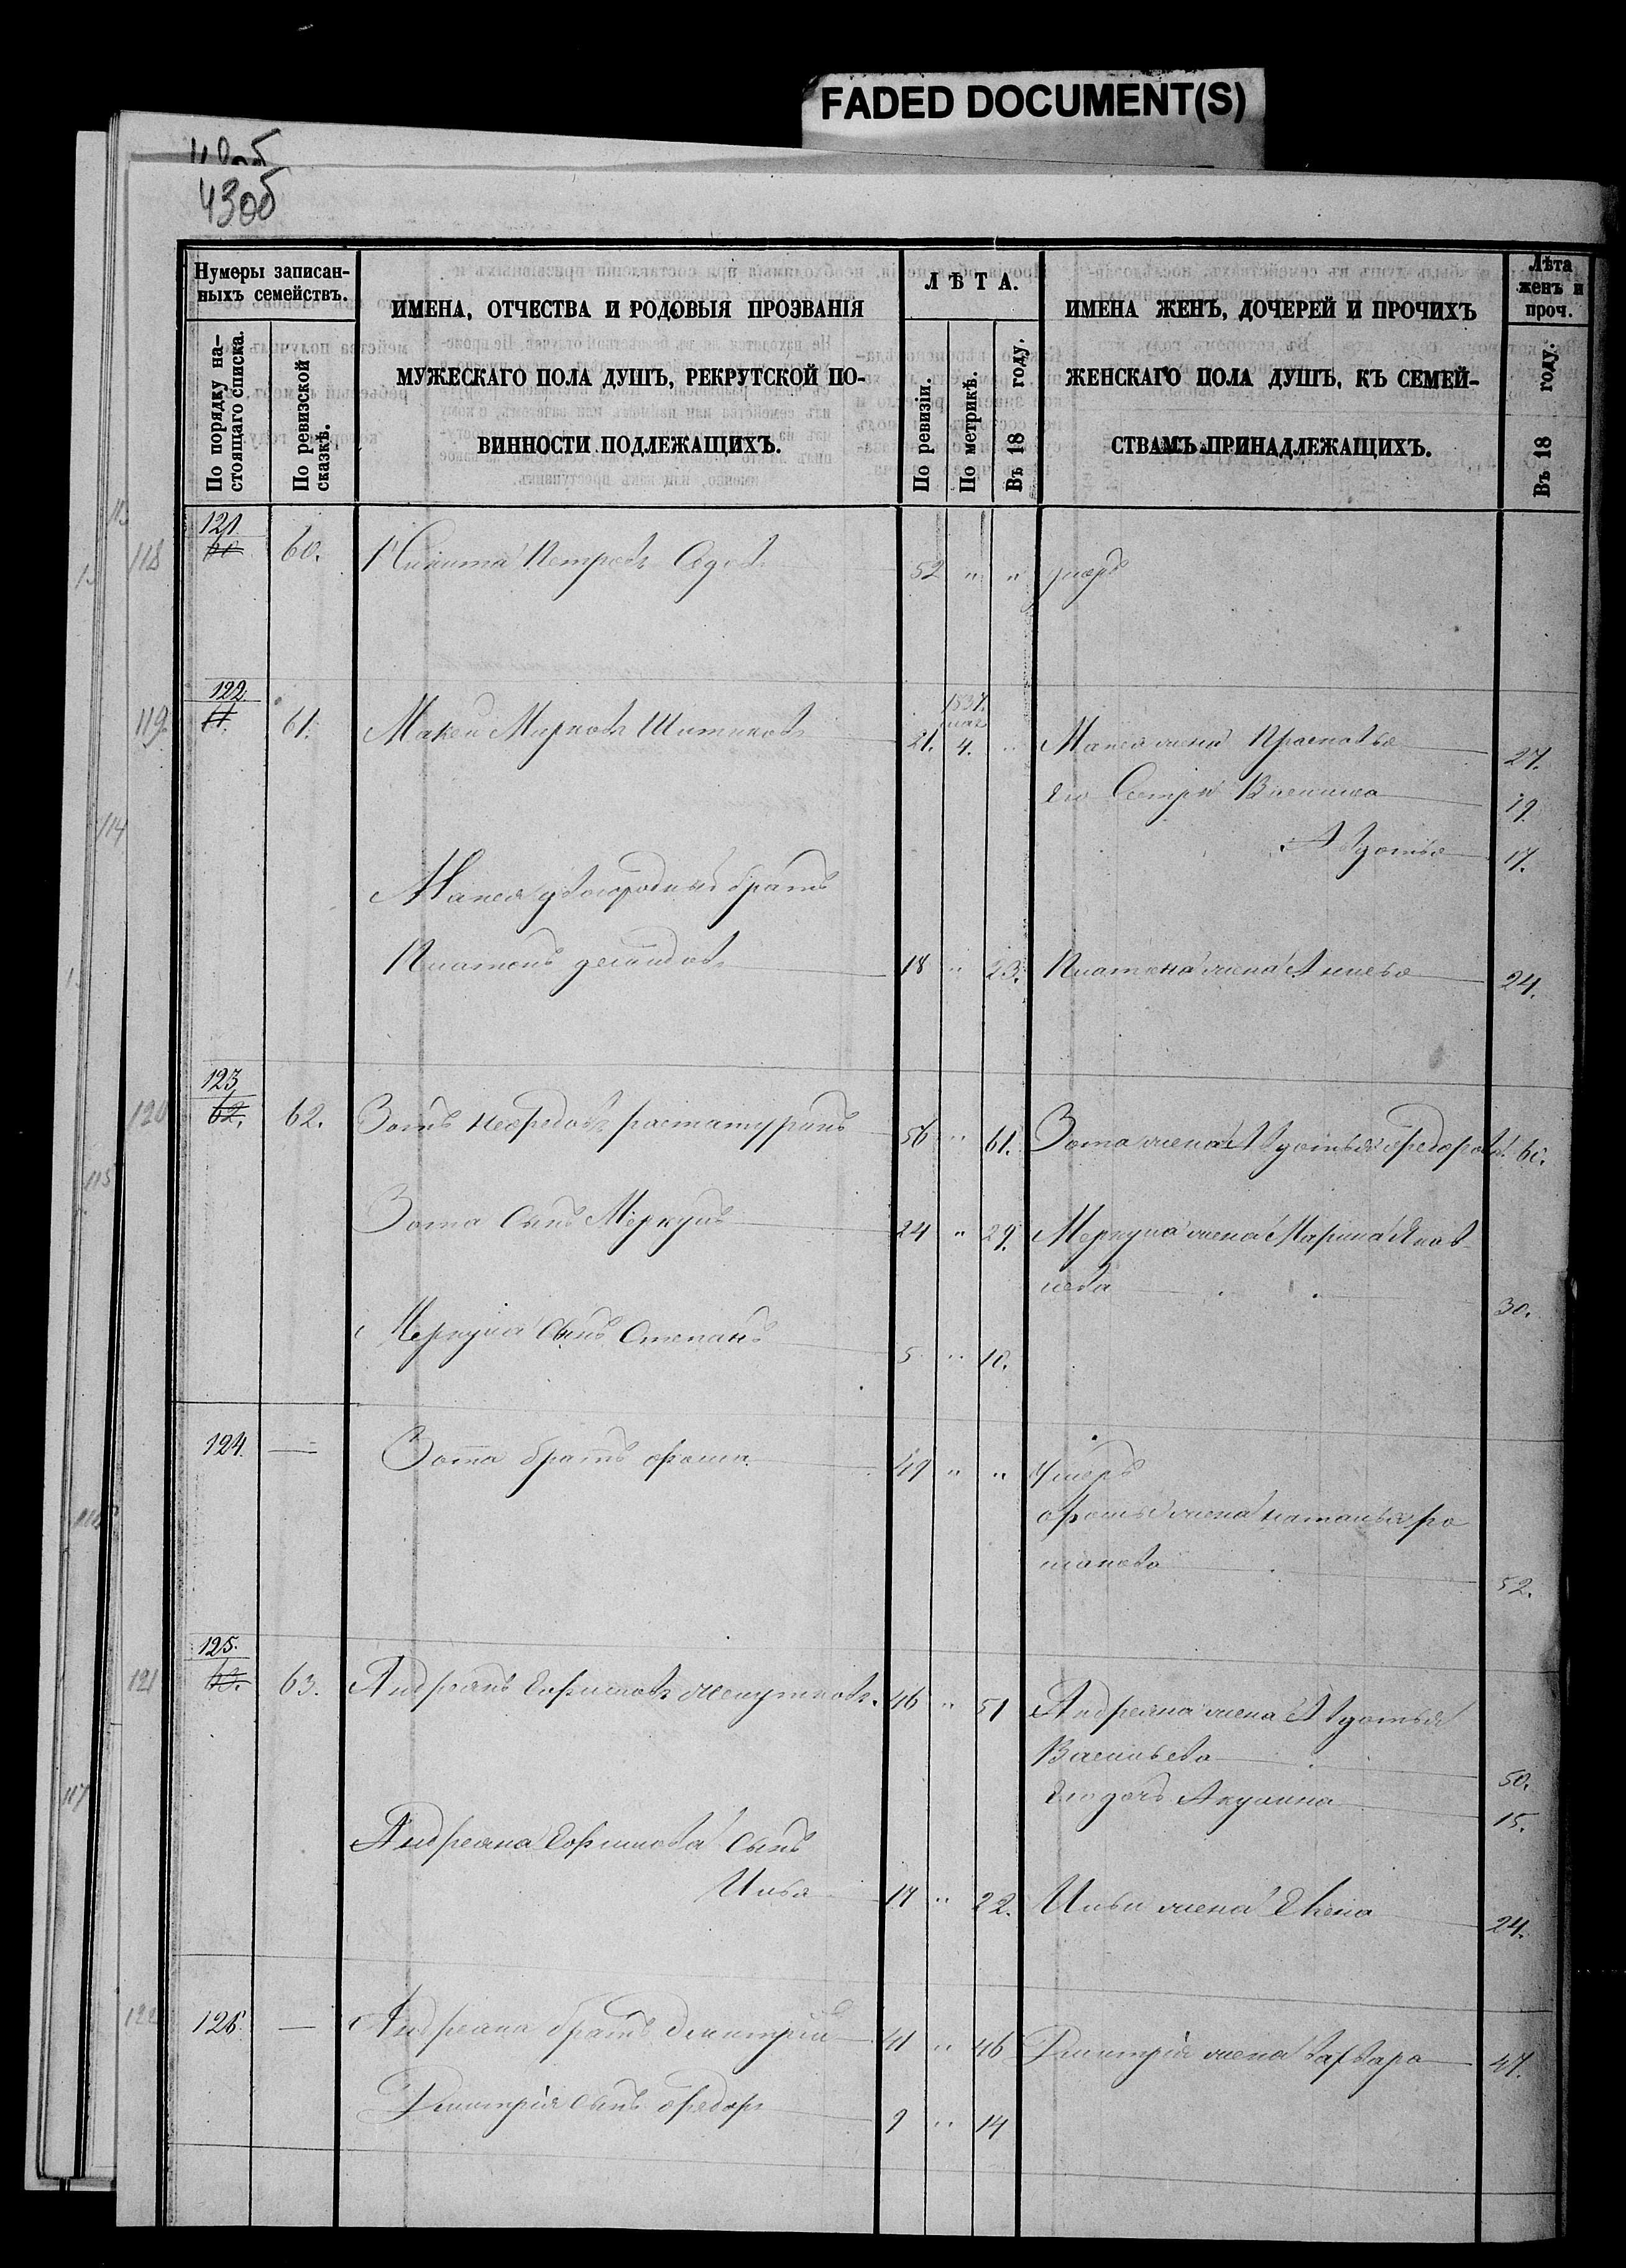 FADED DOCUMENT(S)
43об
Нумеры записан-
ныхъ семействъ.
По порядку на-
стоящаго списка.
По ревизской
сказкѣ.
ИМЕНА, ОТЧЕСТВА И РОДОВЫЯ ПРОЗВАНІЯ
МУЖЕСКАГО ПОЛА ДУШЪ, РЕКРУТСКОЙ ПО-
ВИННОСТИ ПОДЛЕЖАЩИХЪ.
ЛѢТА.
По ревизіи.
По метрикѣ.
Въ 18 году.
ИМЕНА ЖЕНЪ, ДОЧЕРЕЙ И ПРОЧИХЪ
ЖЕНСКАГО ПОЛА ДУШЪ, КЪ СЕМЕЙ-
СТВАМЪ ПРИНАДЛЕЖАЩИХЪ.
Лѣта
женъ и
проч.
Въ 18 году.
121
118 60 60. Никита Петровъ Седовъ 52 " " умеръ
122
119. 61. 61. Макей Марковъ Шитиковъ 21. 1837. 4. " Макея жена Прасковья 27.
Его Сестры Василиса 19.
Авдотья 17.
Макея двоюродный братъ
Платонъ демидовъ 18 " 23. Платона жена 24.
123
120 62. 62. Зотъ Нефедовъ 56 " 61. Зота жена Авдотья федоров. 60.
Зота Сынъ Меркулъ 24 " 29. Меркула жена Марина Яков-
лева 30.
Меркула Сынъ Степанъ 5 " 10.
124. — Зота братъ фома 49 " " Умеръ
фомы жена наталья ро
манова 52.
125.
121 63. 63. Андреянъ Ефимовъ 46 " 51 Андреяна жена Авдотья
Васильева 50.
Его дочь Акулина 15.
Андреяна Ефимова Сынъ
Илья 17 " 22. Ильи жена Елена 24.
122 126. — Андреяна братъ дмитрій 41 " 46 Дмитрія жена варвара 47.
Дмитрія Сынъ федоръ 9 " 14
114
115
116
117